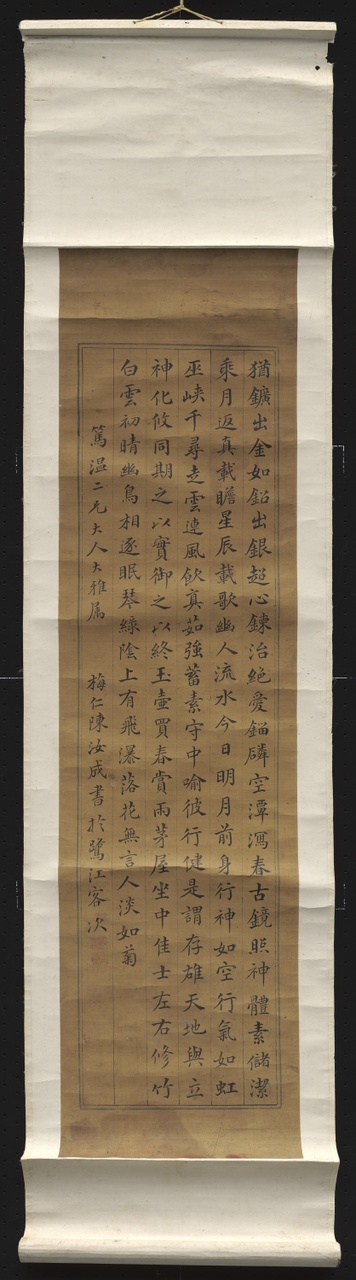 猶鑛出金如鉛出銀超心鍊冶絶愛緇磷空潭瀉春古鏡照神體素儲潔
乘月返真載瞻星辰載歌幽人流水今日明月前身行神如空行氣如虹
巫峽千尋走雲連風飲真茹強蓄素守中喻彼行健是謂存雄天地與立
神化攸同期之以實御之以終玉壺買春賞雨茅屋坐中佳士左右修竹
白雲初晴幽鳥相逐眠琴綠陰上有飛瀑落花無言人淡如菊
篤溫二兄大人大雅属
梅仁陳汝成書於鷺江客次